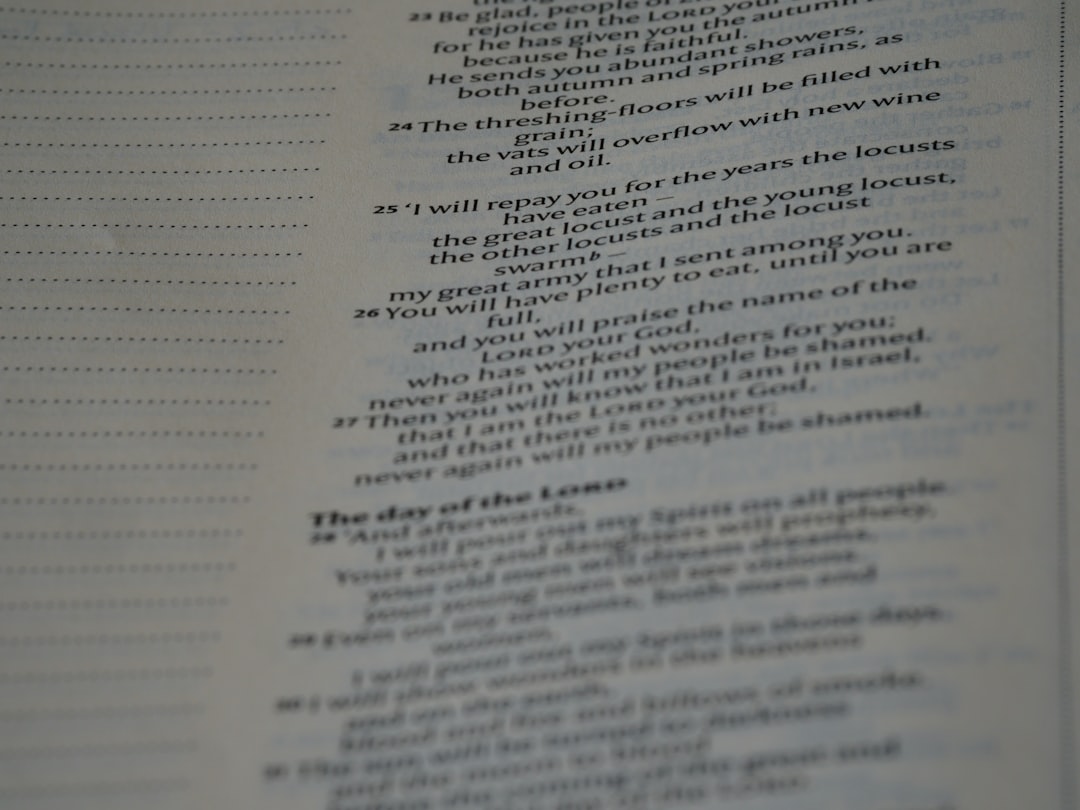 23 Be glad, people of
rejoice in the LORD your
for he has given you the autumn
because he is faithful.
He sends you abundant showers,
both autumn and spring rains, as
before.
24 The threshing-floors will be filled with
grain;
the vats will overflow with new wine
and oil.
25 ‘I will repay you for the years the locusts
have eaten –
the great locust and the young locust,
the other locusts and the locust
swarmᵇ –
my great army that I sent among you.
26 You will have plenty to eat, until you are
full,
and you will praise the name of the
LORD your God,
who has worked wonders for you;
never again will my people be shamed.
27 Then you will know that I am in Israel,
that I am the LORD your God,
and that there is no other;
never again will my people be shamed.
The day of the LORD
28 ‘And afterwards,
I will pour out my Spirit on all people.
Your sons and daughters will prophesy,
your old men will dream dreams,
your young men will see visions.
29 Even on my servants, both men and
women,
I will pour out my Spirit in those days.
30 I will show wonders in the heavens
and on the earth,
blood and fire and billows of smoke.
31 The sun will be turned to darkness
and the moon to blood
before the coming of the great and